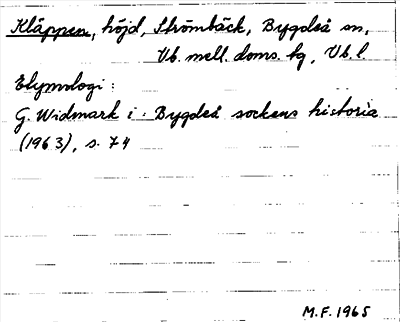 Kläppen, höjd, Strömbäck, Bygdeå sn,
Vb. mell. doms. tg, Vb. l
Etymologi:
G. Widmark i: Bygdeå sockens historia
(1963), s. 74
M.F. 1965